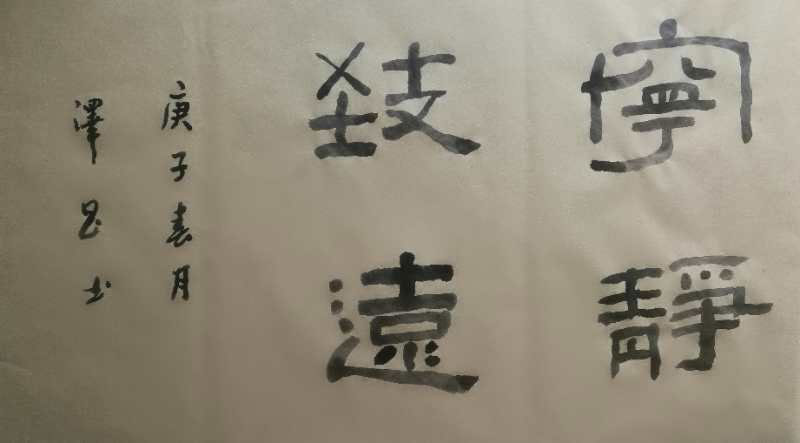 寧靜
致遠
庚子春月
澤昌书